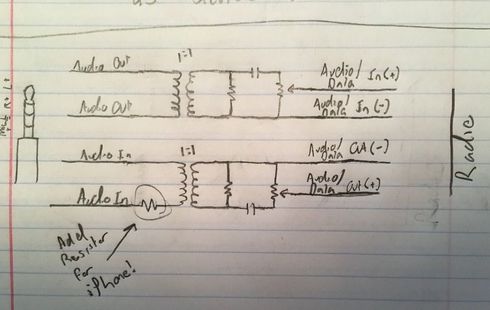 Audio Out
1:1
Audio/
Data
In(+)
Audio Out
Audio/
Data
In(-)
Audio In
1:1
Audio/
Data
Out(-)
Audio In
Audio/
Data
Out(+)
Add
Resistor
for
iPhone!
Radio